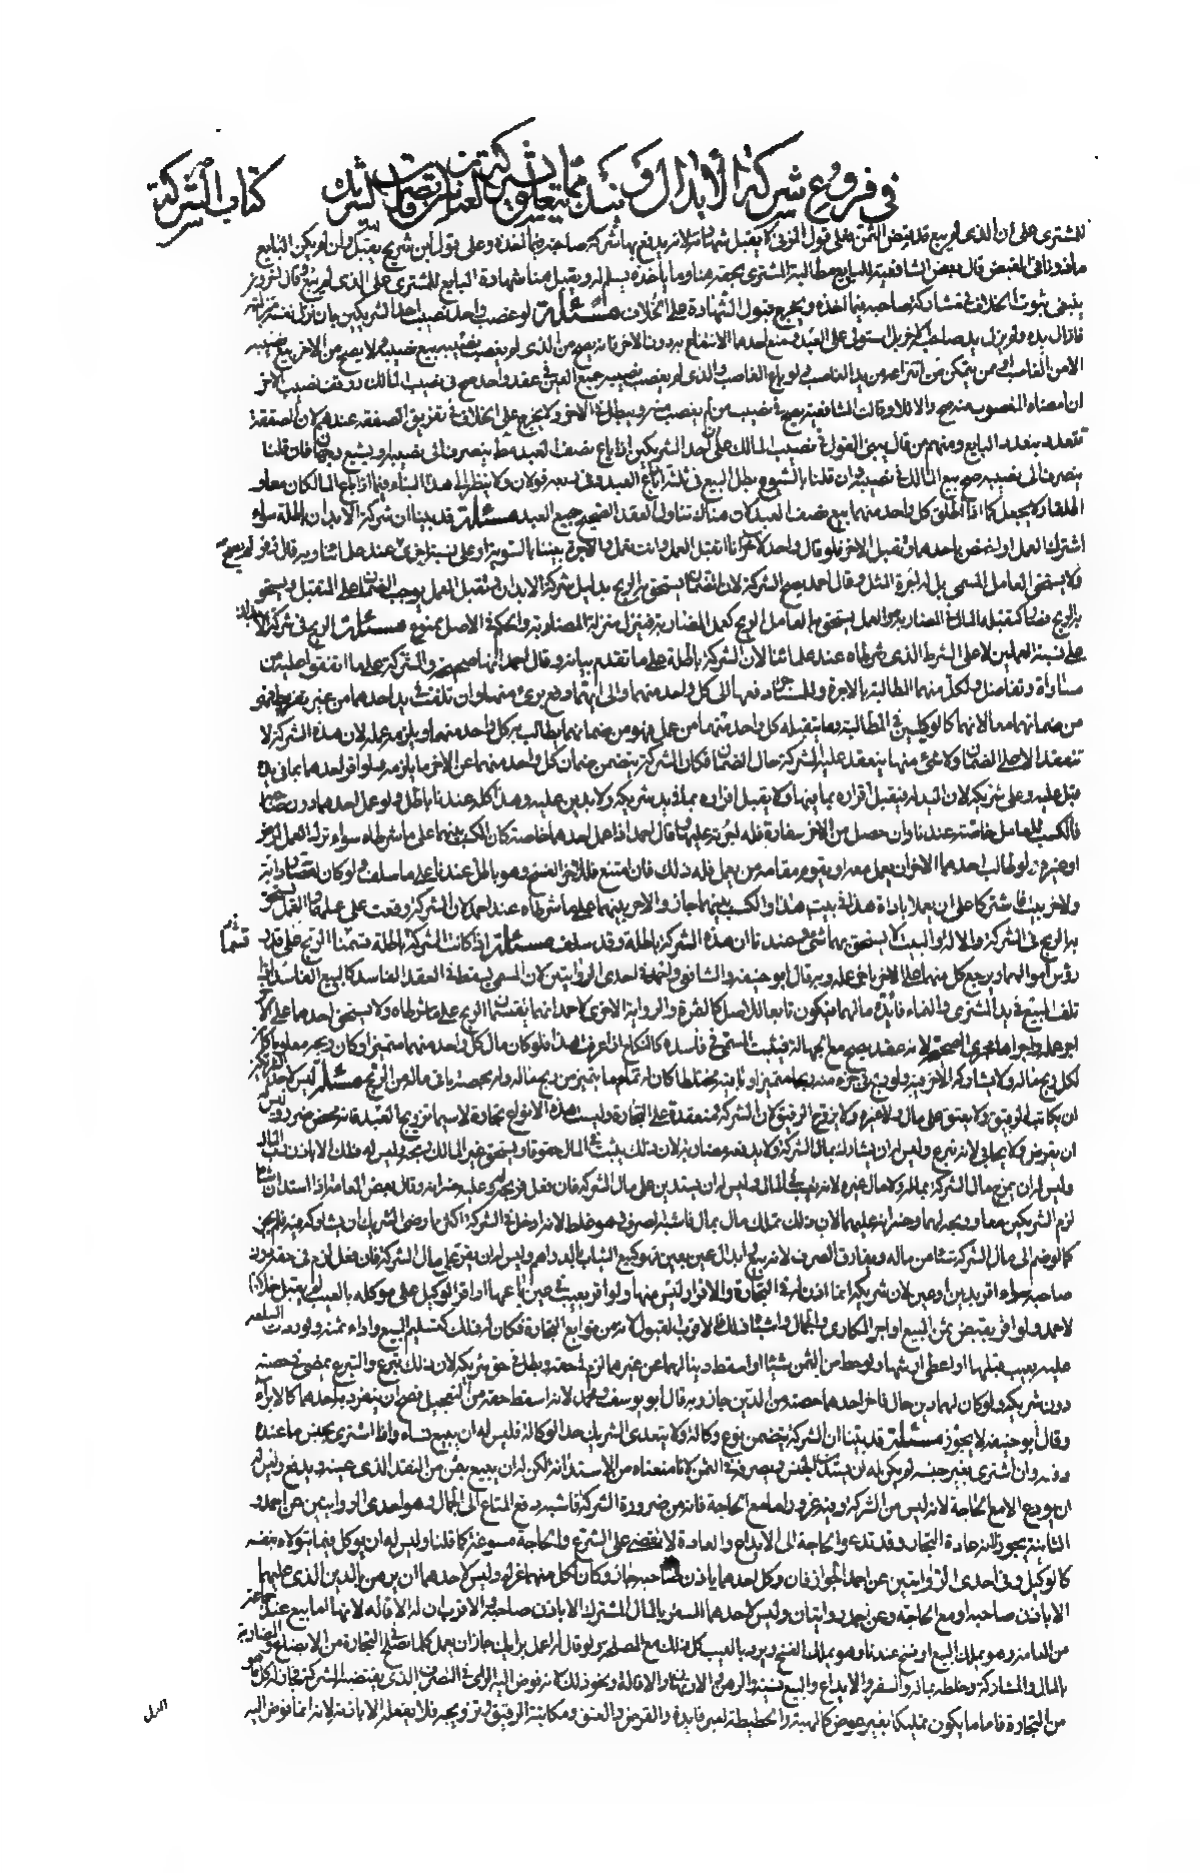 كتاب الشركة
في فروع شركة الأبدال و نبذ مما يتعلق بشركة العنان من تصرفات الشريك
للمشتري على أن الذي لم يبع قد قبض الثمن فعلى قول المزني لا يقبل شهادته لانه يدفع بها شركة صاحبه فيما أخذه وعلى قول ابن شريح يقبل وان لم يكن البايع
مأذونا في القبض قال بعض الشافعية للبايع مطالبة المشتري بحصته هنا وما يأخذه يسلم له ويقبل هنا شهادة البايع للمشتري على الذي لم يبع وقال اخرون
ينبغي ثبوت الخلاف في مشاركة صاحبه فيما اخذه ويخرج قبول الشهادة على الخلاف مسئلة لو غصب واحد نصيب احد الشريكين بان نزل نفسه منزلته
فازال يده ولم يزل يد صاحبه الاخر بل استولى على العبد ومنع احدهما الانتفاع به دون الاخر فانه يصح من الذي لم يغصب نصيبه بيع نصيبه ولا يصح من الاخر بيع نصيبه
الا من الغاصب او ممن يتمكن من انتزاعه من يد الغاصب ولو باع الغاصب والذي لم يغصب نصيبه جميع العين في عقد واحد صح في نصيب المالك ووقف نصيب الاخر
ان امضاه المغصوب منه صح والا فلا وقالت الشافعية يصح في نصيب من لم يغصب منه ويبطل في الاخر ولا يخرج على الخلاف في تفريق الصفقة عندهم لان الصفقة
تتعدد بتعدد البايع ومنهم من قال يبنى القول في نصيب المالك على ان احد الشريكين اذا باع نصف العبد مطلقا ينصرف الى نصيبه او يشيع وجهان فان قلنا
ينصرف الى نصيبه صح بيع المالك في نصيبه وان قلنا بالشيوع بطل البيع في ثلثة ارباع العبد وفي ربعه قولان ولا ينظر الى هذا البناء فيما اذا باع المالكان معا و
اطلقا ولا يجعل كما اذا اطلق كل واحد منهما بيع نصف العبد لان هناك تناول العقد الصحيح جميع العبد مسئلة قد بينا ان شركة الابدان باطلة سواء
اشتركا في العمل او اختص باحدهما وتقبل الاخر فلو قال واحد لاخر انا اتقبل العمل وانت تعمل والاجرة بيننا بالسوية او على نسبة اخرى لم يصح عند علمائنا وبه قال زفر
ولا يستحق العامل المسمى بل له اجرة المثل وقال احمد يصح الشركة لان الضمان يستحق به الربح بدليل شركة الابدان وتقبل العمل يوجب الضمان على المتقبل ويستحق
به الربح فصار كتقبله المال في المضاربة والعمل يستحق به العامل الربح كعمل المضارب فينزل منزلة المضاربة والحكم في الاصل ممنوع مسئلة الربح في شركة الابدان
على نسبة العملين لا على الشرط الذي شرطاه عند علمائنا لان الشركة باطلة على ما تقدم بيانه وقال احمد انها صحيحة والشركة على ما اتفقوا عليه من
مساواة وتفاضل ولكل منهما المطالبة بالاجرة وللمستاجر دفعها الى كل واحد منهما والى ايهما دفع برئ منهما وان تلفت في يد احدهما من غير تفريط فهو
من ضمانهما معا لانهما كالوكيلين في المطالبة وما يتقبله كل واحد منهما من عمل فهو من ضمانهما يطالب به كل واحد منهما ويلزمه عمله لان هذه الشركة لا
تنعقد الا على الضمان ولا شيء منها ينعقد عليه الشركة حال الضمان فكان الشركة يتضمن ضمان كل واحد منهما عن الاخر ما يلزمه ولو اقر احدهما بما في يده
قبل عليه وعلى شريكه لان اليد له فيقبل اقراره بما فيها ولا يقبل اقراره بما في يد شريكه ولا بدين عليه وهذا كله عندنا باطل ولو عمل احدهما دون صاحبه
فالكسب للعامل خاصة عندنا وان حصل من الاخر سفارة فله اجرته عليها وقال احمد اذا عمل احدهما خاصة كان الكسب بينهما على ما شرطاه سواء ترك العمل لمرض
او غيره ولو طالب احدهما الاخر ان يعمل معه او يقيم مقامه من يعمل فله ذلك فان امتنع فللاخر الفسخ وهو باطل عندنا على ما سلف ولو كان لقصار اداة
ولاخر بيت فاشتركا على ان يعملا باداة هذا في بيت هذا والكسب بينهما جاز والاجر بينهما على ما شرطاه عند احمد لان الشركة وقعت على عملهما والعمل يستحق
به الربح في الشركة والالة والبيت لا يستحق بهما شيء وعندنا ان هذه الشركة باطلة وقد سلف مسئلة اذا كانت الشركة باطلة قسمنا الربح على قدر
رؤس اموالهما ويرجع كل منهما على الاخر باجر عمله وبه قال ابو حنيفة والشافعي واحمد في احدى الروايتين لان المسمى يسقط في العقد الفاسد كالبيع الفاسد اذا
تلف المبيع في يد المشتري والنماء فائدة مالهما فيكون تابعا للاصل كالثمرة والرواية الاخرى لاحمد انهما يقتسمان الربح على ما شرطاه ولا يستحق احدهما على الاخر
اجر عمله واجراها مجرى الصحيحة لانه عقد يصح مع الجهالة فيثبت المسمى في فاسده كالنكاح اذا عرفت هذا فلو كان مال كل واحد منهما متميزا وكان ربحه معلوما كان
لكل ربح ماله ولا يشاركه الاخر فيه ولو ربح في جزء منه ربحا متميزا وباقيه مختلطا كان له تمام ما تميز من ربح ماله وله بحصة باقي ماله من الربح مسئلة ليس لاحد الشريكين
ان يكاتب الرقيق ولا يعتق على مال ولا غيره ولا يزوج الرقيق لان الشركة منعقدة على التجارة وليست هذه الانواع تجارة لا سيما تزويج العبد فانه محض ضرر وليس له
ان يقرض ولا يحابي لانه تبرع وليس له ان يشارك بمال الشركة ولا يدفعه مضاربة لان ذلك يثبت في المال حقوقا ويستحق غير المالك ربحه وليس له ذلك الا باذن رب المال
وليس له ان يمزج مال الشركة بماله ولا مال غيره لانه تعيب في المال وليس له ان يستدين على مال الشركة فان فعل فربحه له وعليه خسرانه وقال بعض العامة اذا استدان شيئا
لزم الشريكين معا وربحه لهما وخسرانه عليهما لان ذلك تملك مال بمال فاشبه الصرف وهو غلط لانه ادخل في الشركة اكثر مما رضي الشريك ان يشاركه فيه فلم يجز
كما لو ضم الى مال الشركة شيئا من ماله ويفارق الصرف لانه بيع وابدال عين بعين فهو كبيع الثياب بالدراهم وليس له ان يقر على مال الشركة فان فعل لزم في حقه دون
صاحبه سواء اقر بدين او عين لان شريكه انما اذن له في التجارة والاقرار ليس منها ولو اقر بعيب في عين باعها او اقر الوكيل على موكله بالعيب لم يقبل خلافا
لاحمد ولو اقر بقبض ثمن المبيع او اجر المكاري والحمال واشباه ذلك فالاقرب القبول لانه من توابع التجارة فكان له ذلك كتسليم المبيع واداء ثمنه ولو ردت السلعة
عليه بعيب قبلها او اعطى ارشها ولو حط من الثمن شيئا او اسقط دينا لهما عن غريمهما لزم في حقه وبطل في حق شريكه لان ذلك تبرع والتبرع يمضي في حصته
دون شريكه ولو كان لهما دين حال فاخر احدهما حصته من الدين جاز وبه قال ابو يوسف ومحمد لانه اسقط حقه من التعجيل فصح ان ينفرد به احدهما كالابراء
وقال ابو حنيفة لا يجوز مسئلة قد بينا ان الشركة يتضمن نوع وكالة ولا يتعدى الشريك حد الوكالة فليس له ان يبيع نساء واذا اشترى بجنس ما عنده
ونقد وان اشترى بغير جنسه لم يكن له ان يستبدل الجنس ويصرفه في الثمن لانا منعناه من الاستدانة لكن له ان يبيع بثمن من النقد الذي عينه ويدفع وليس له
ان يودع الا مع الحاجة لانه ليس من الشركة وفيه غرر واما مع الحاجة فانه من ضرورة الشركة فاشبه دفع المتاع الى الحمال وهو احدى الروايتين عن احمد و
الثانية يجوز لانه عادة التجار وقد تدعو الحاجة الى الايداع والعادة لا تقضي على الشرع والحاجة مسوغة كما قلنا وليس له ان يوكل فيما يتولاه بنفسه
كالوكيل وفي احدى الروايتين عن احمد الجواز فان وكل احدهما باذن صاحبه جاز وكان لكل منهما عزله وليس لاحدهما ان يرهن بالدين الذي عليهما
الا باذن صاحبه او مع الحاجة وعن احمد روايتان وليس لاحدهما السفر بالمال المشترك الا باذن صاحبه والاقرب ان له الاقالة لانها اما بيع عند جماعة
من العامة وهو يملك البيع او فسخ عندنا وهو يملك الفسخ ويرد بالعيب كل ذلك مع المصلحة ولو قال له اعمل برأيك جاز ان يعمل كلما يصلح في التجارة من الابضاع والمضاربة
بالمال والمشاركة وخلطه بماله والسفر والايداع والبيع نسية والرهن والارتهان والاقالة ونحو ذلك لانه فوض اليه الرأي في التصرف الذي يقتضيه الشركة فجاز له كل ما هو
من التجارة فاما ما يكون تمليكا بغير عوض كالهبة والحطيطة لغير فائدة والقرض والعتق ومكاتبة الرقيق وتزويجه فلا يفعله الا باذنه لانه انما فوض اليه